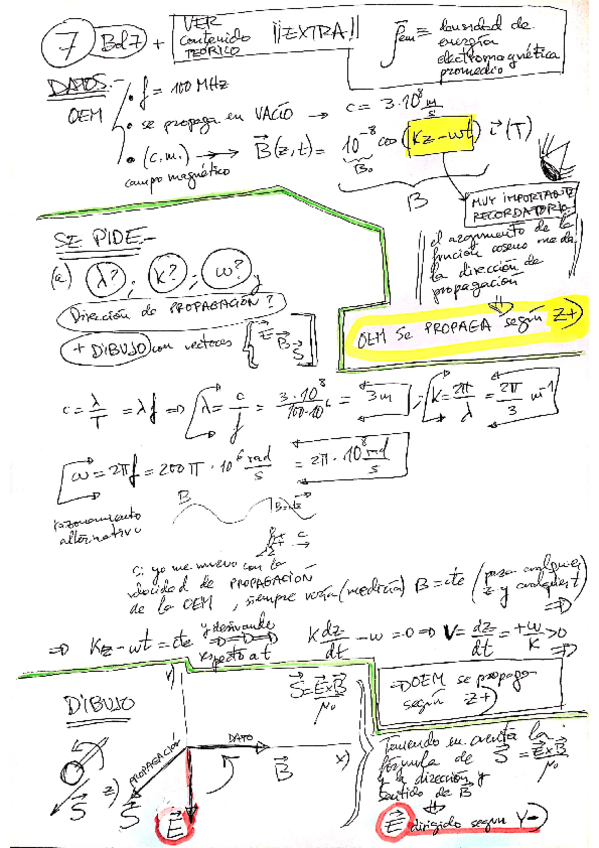 7 Bol 7 + VER contenido TEÓRICO ¡¡EXTRA!!
ρem ≡ densidad de energía electromagnética promedio
DATOS.-
OEM
• f = 100 MHz
• se propaga en VACÍO → c = 3·10⁸ m/s
• (c.m.) → B⃗(z,t) = 10⁻⁸ cos(kz-wt) i⃗ (T)
campo magnético
B₀
B
MUY IMPORTANTE RECORDATORIO
el argumento de la
función coseno me da
la dirección de
propagación
⇓
OEM SE PROPAGA según Z+
SE PIDE.-
(a) λ? ; K? ; ω? y
Dirección de PROPAGACIÓN?
+ DIBUJO con vectores { E⃗ B⃗ S⃗
c = λ/T = λf ⇒ λ = c/f = 3·10⁸/100·10⁶ = 3m ; K = 2π/λ = 2π/3 m⁻¹
ω = 2πf = 200π·10⁶ rad/s = 2π·10⁸ rad/s
razonamiento
alternativo
B
c
Si yo me muevo con la
velocidad de PROPAGACIÓN
de la OEM, siempre vería (mediría) B = cte (para cualquier z y cualquier t) ⇒
⇒ Kz-wt = cte y derivando respecto a t ⇒ K dz/dt - w = 0 ⇒ V = dz/dt = +w/K > 0 ⇒
⇒ OEM se propaga
según Z+
DIBUJO
Y)
S⃗ = E⃗×B⃗/μ₀
DATO
B⃗
X)
PROPAGACIÓN
Z)
S⃗
S⃗
E⃗
Teniendo en cuenta la
fórmula de S⃗ = E⃗×B⃗/μ₀
y la dirección y
sentido de B
⇓
E⃗ dirigido según Y-